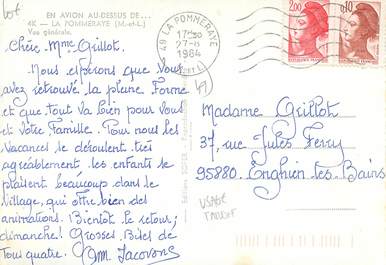 EN AVION AU-DESSUS DE...
4K - LA POMMERAYE (M.-et-L.)
Vue générale.
Chère Mme Grillot.
Nous espérons que Vous
avez retrouvé la pleine Forme
et que tout va bien pour vous
et Vôtre Famille. Pour nous les
Vacances se déroulent très
agréablement. les enfants se
plaisent beaucoup dans le
Village, qui offre bien des
animations. Bientôt le retour;
dimanche! Grosses Bises de
Tous quatre.
49 LA POMMERAYE
17H30
27-8
1984
2,00
0,10
Madame Grillot
37, rue Jules Ferry
95880. Enghien les Bains
USAGE
TARDIF